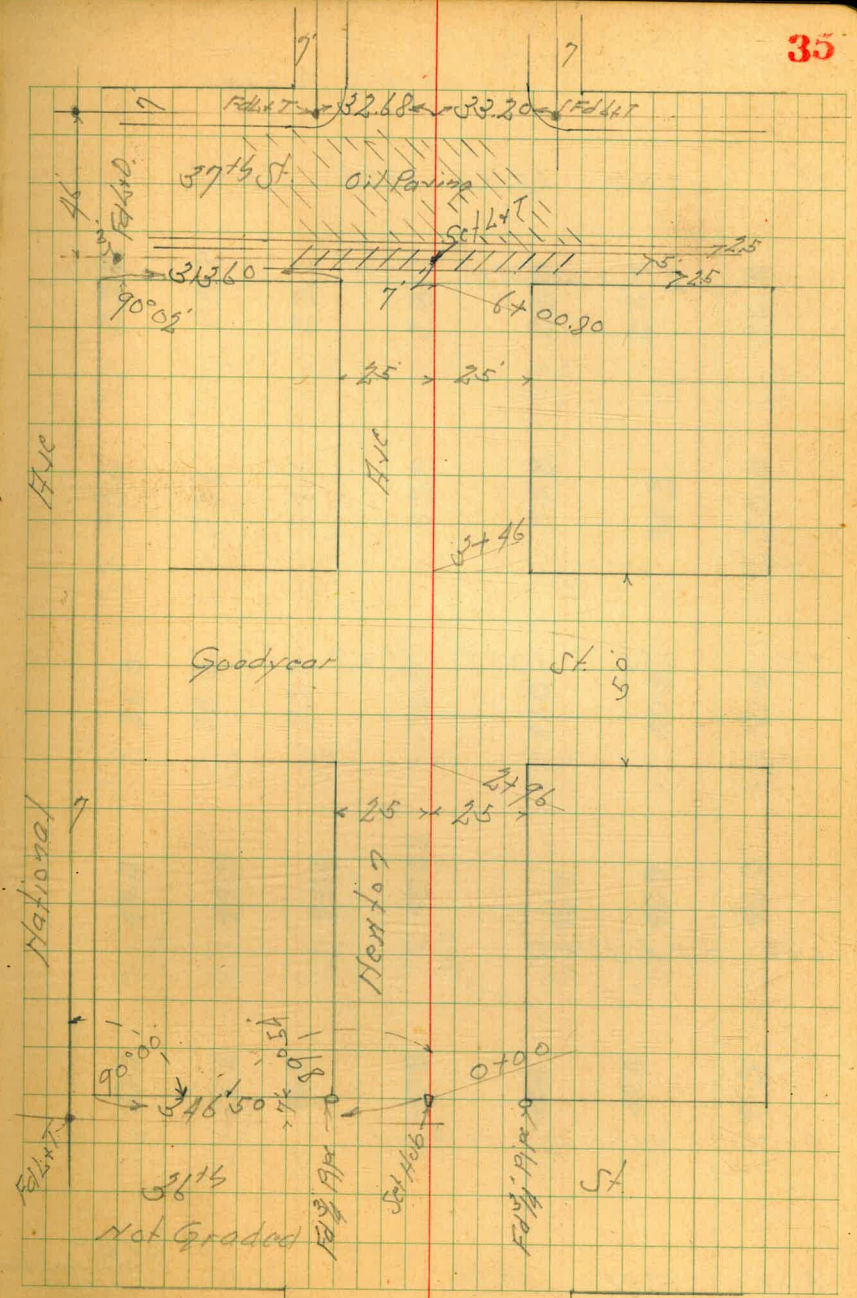 35
7'
7
7
Fd L+T 32.68 33.20 Fd L+T
46
Fd L+D.
37th St. Oil Paving
Set L+T
3'
7.25
7.5
7.25
313.60
90°02'
7'
6+00.80
25 25'
Ave
Ave
3+46
Goodyear St.
50
2+96
25 25
National
7
Newton
90°00'
0+00
346.50
Fd L+T
Fd 3/4" Pipe
Set Hub
Fd 3/4" Pipe
36th St
Not Graded